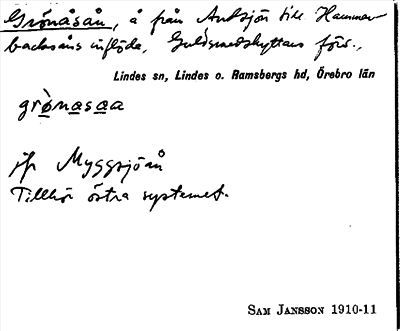 Grönåsån, å från Anksjön till Hammar-
backsåns inflöde, Guldsmedshyttans förs.,
Lindes sn, Lindes o. Ramsbergs hd, Örebro län
grònasaa
jfr Myggsjöån
Tillhör östra systemet.
SAM JANSSON 1910-11